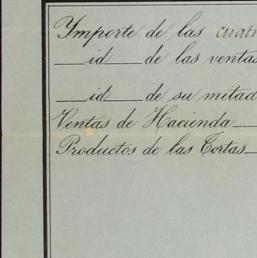 Ymporte de las cuatr
id de las ventas
id de su mitad
Ventas de Hacienda
Productos de las Tortas